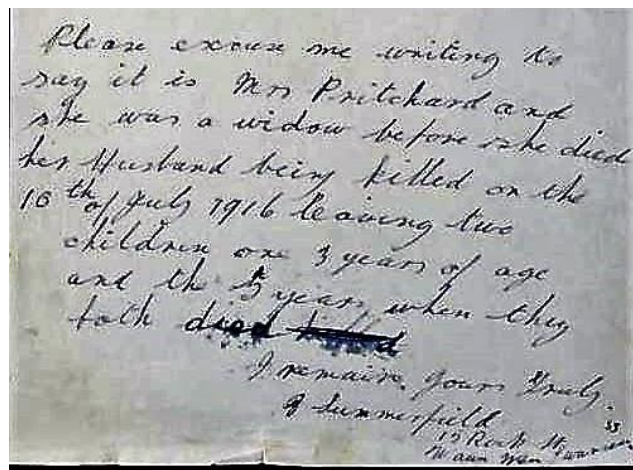 Please excuse me writing to
say it is Mrs Pritchard and
she was a widow before she died
her Husband being killed on the
16th of July 1916 leaving two
children one 3 years of age
and the 5 years when they
both died
I remain yours Truly.
Summerfield
Rock St
Waun Wen Swansea